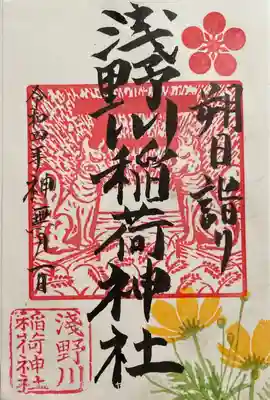 朔日詣り
淺野川稲荷神社
令和四年神無月一日
淺野川
稲荷神社